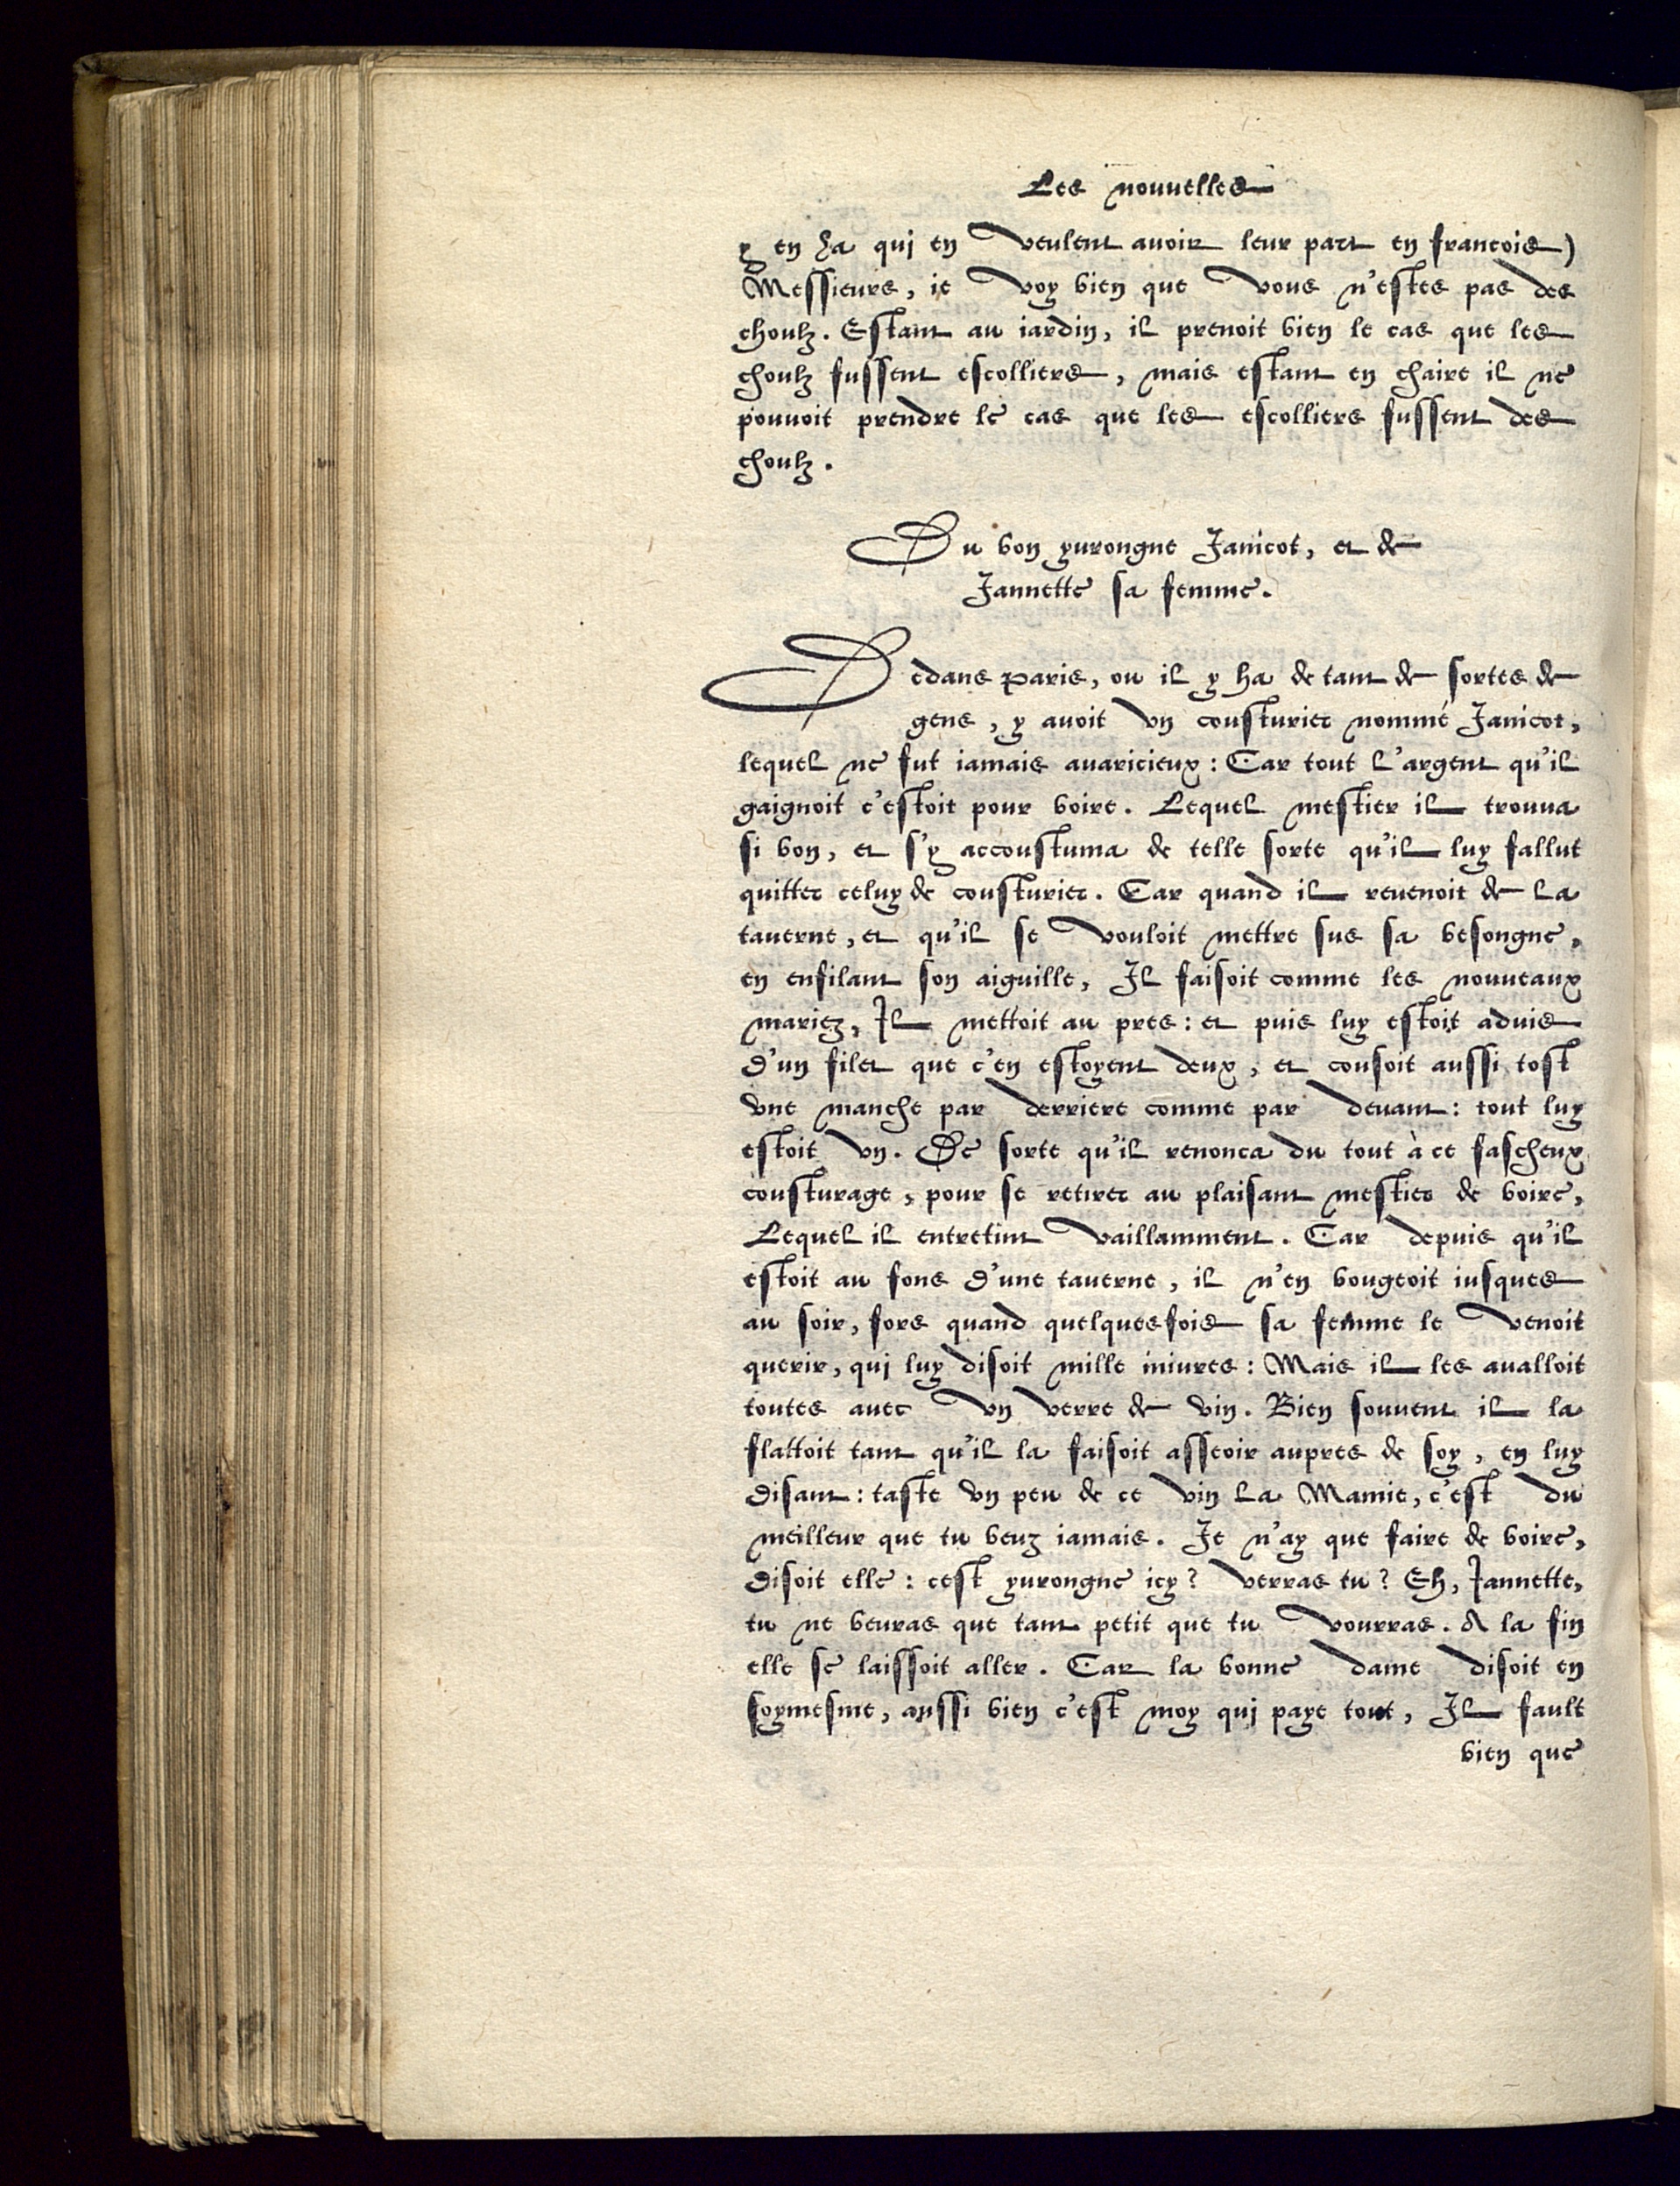 Les nouuelles
y en ha qui en veulent auoir leur part en francois)
Messieurs, ie voy bien que vous n'estes pas des
choulz. Estant au iardin, il prenoit bien le cas que les
choulz fussent escolliers, mais estant en chaire il ne
pouuoit prendre le cas que les escolliers fussent des
choulz.
Du bon yurongne Janicot, et de
Jannette sa femme.
Dedans Paris, ou il y ha de tant de sortes de
gens, y auoit vn cousturier nommé Janicot,
lequel ne fut iamais auaricieux: Car tout l'argent qu'il
gaignoit c'estoit pour boire. Lequel mestier il trouua
si bon, et s'y accoustuma de telle sorte qu'il luy fallut
quitter celuy de cousturier. Car quand il reuenoit de la
tauerne, et qu'il se vouloit mettre sus sa besongne,
en enfilant son aiguille, Il faisoit comme les nouueaux
mariez, Il mettoit au pres: et puis luy estoit aduis
d'un filet que c'en estoyent deux, et cousoit aussi tost
vne manche par derriere comme par deuant: tout luy
estoit vn. De sorte qu'il renonca du tout à ce fascheux
cousturage, pour se retirer au plaisant mestier de boire,
Lequel il entretint vaillamment. Car depuis qu'il
estoit au fons d'une tauerne, il n'en bougeoit iusques
au soir, fors quand quelquesfois sa femme le venoit
querir, qui luy disoit mille iniures: Mais il les aualloit
toutes auec vn verre de vin. Bien souuent il la
flattoit tant qu'il la faisoit asseoir aupres de soy, en luy
disant: taste vn peu de ce vin la Mamie, c'est du
meilleur que tu beuz iamais. Je n'ay que faire de boire,
disoit elle: cest yurongne icy? verras tu? Eh, Jannette,
tu ne beuras que tant petit que tu vourras. A la fin
elle se laissoit aller. Car la bonne dame disoit en
soymesme, aussi bien c'est moy qui paye tout, Il fault
bien que